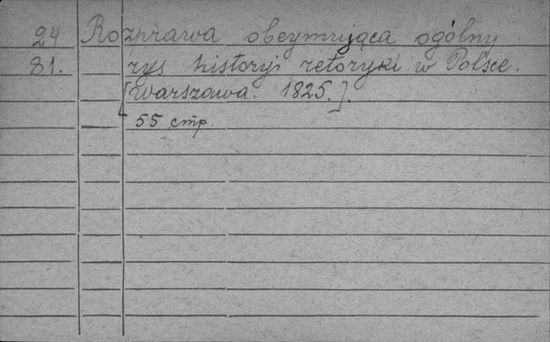 24 Rozprawa obeymująca ogólny
81. rys historyi retoryki w Polsce.
[Warszawa. 1825.].
55 стр.